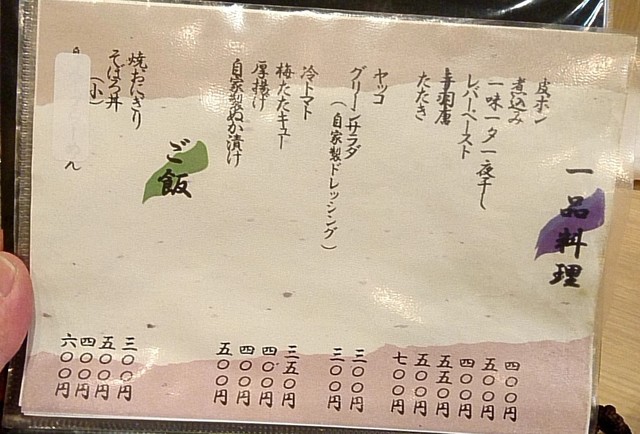 一品料理
皮ポン 四〇〇円
煮込み 五〇〇円
一味一夕一夜干し 四〇〇円
レバーペースト 五五〇円
手羽唐 五〇〇円
たたき 七〇〇円
ヤッコ 三〇〇円
グリーンサラダ 三〇〇円
(自家製ドレッシング)
冷トマト 三五〇円
梅たたキュー 四〇〇円
厚揚げ 四〇〇円
自家製ぬか漬け 五〇〇円
ご飯
焼おにぎり 三〇〇円
そぼろ丼 五〇〇円
(小) 四〇〇円
六〇〇円